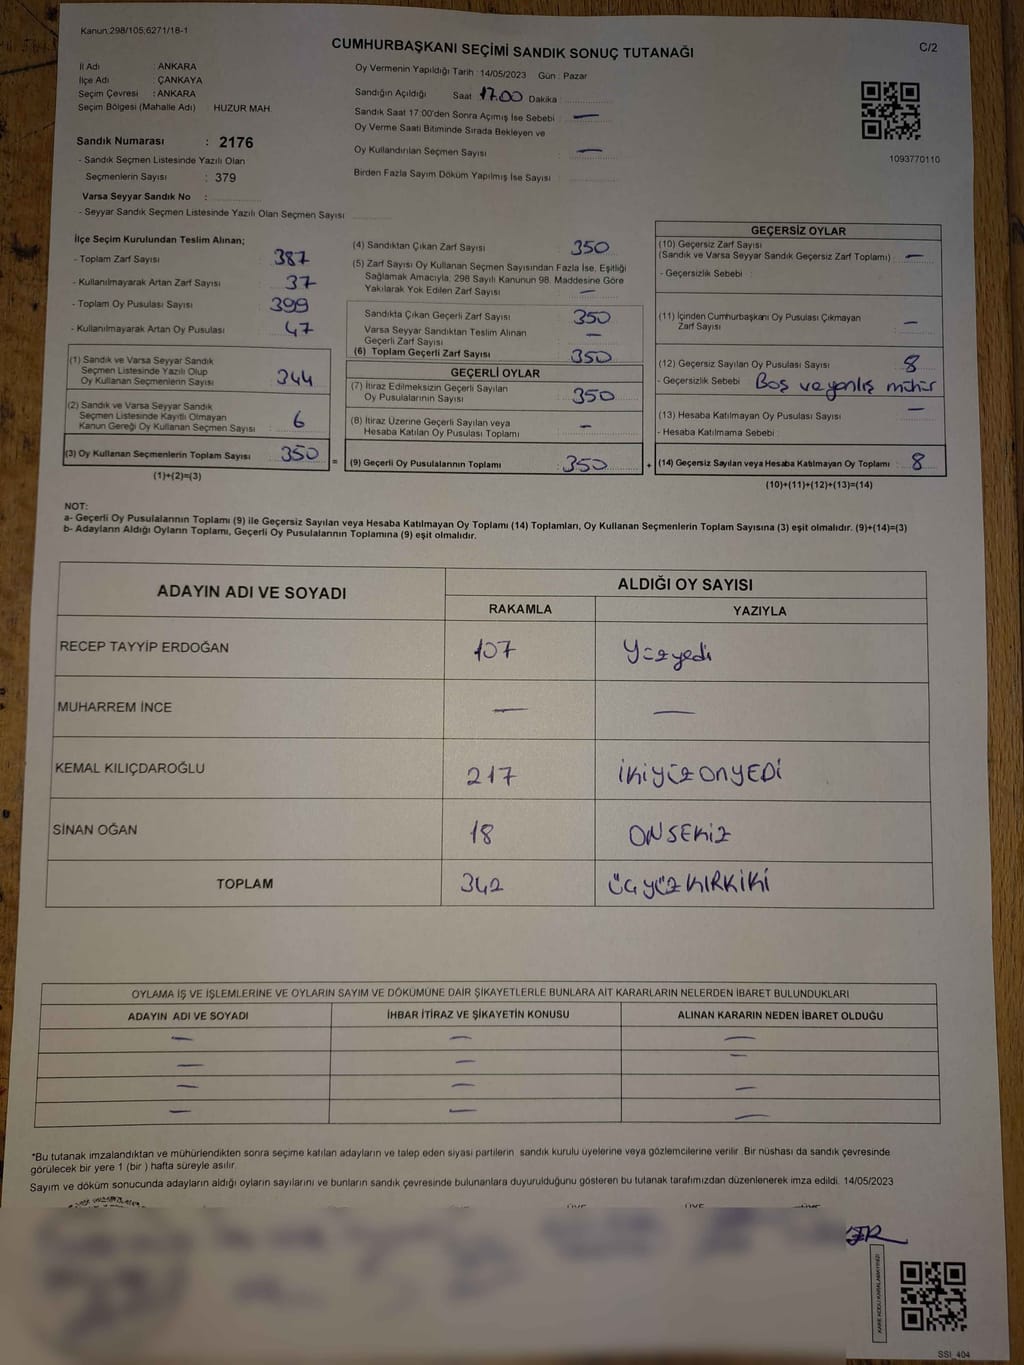 Kanun:298/105;6271/18-1
CUMHURBAŞKANI SEÇİMİ SANDIK SONUÇ TUTANAĞI
C/2
İl Adı : ANKARA
İlçe Adı : ÇANKAYA
Seçim Çevresi : ANKARA
Seçim Bölgesi (Mahalle Adı) : HUZUR MAH.
Sandık Numarası : 2176
- Sandık Seçmen Listesinde Yazılı Olan
Seçmenlerin Sayısı : 379
Varsa Seyyar Sandık No :
- Seyyar Sandık Seçmen Listesinde Yazılı Olan Seçmen Sayısı
Oy Vermenin Yapıldığı Tarih : 14/05/2023 Gün : Pazar
Sandığın Açıldığı Saat 17.00 Dakika :
Sandık Saat 17:00'den Sonra Açımış İse Sebebi : —
Oy Verme Saati Bitiminde Sırada Bekleyen ve
Oy Kullandırılan Seçmen Sayısı : —
Birden Fazla Sayım Döküm Yapılmış İse Sayısı :
1093770110
İlçe Seçim Kurulundan Teslim Alınan;
- Toplam Zarf Sayısı : 387
- Kullanılmayarak Artan Zarf Sayısı : 37
- Toplam Oy Pusulası Sayısı : 399
- Kullanılmayarak Artan Oy Pusulası : 47
(1) Sandık ve Varsa Seyyar Sandık
Seçmen Listesinde Yazılı Olup
Oy Kullanan Seçmenlerin Sayısı : 344
(2) Sandık ve Varsa Seyyar Sandık
Seçmen Listesinde Kayıtlı Olmayan
Kanun Gereği Oy Kullanan Seçmen Sayısı : 6
(3) Oy Kullanan Seçmenlerin Toplam Sayısı : 350
(1)+(2)=(3)
(4) Sandıktan Çıkan Zarf Sayısı : 350
(5) Zarf Sayısı Oy Kullanan Seçmen Sayısından Fazla İse, Eşitliği
Sağlamak Amacıyla, 298 Sayılı Kanunun 98. Maddesine Göre
Yakılarak Yok Edilen Zarf Sayısı : —
Sandıkta Çıkan Geçerli Zarf Sayısı : 350
Varsa Seyyar Sandıktan Teslim Alınan
Geçerli Zarf Sayısı : —
(6) Toplam Geçerli Zarf Sayısı : 350
GEÇERLİ OYLAR
(7) İtiraz Edilmeksizin Geçerli Sayılan
Oy Pusulalarının Sayısı : 350
(8) İtiraz Üzerine Geçerli Sayılan veya
Hesaba Katılan Oy Pusulası Toplamı : —
= (9) Geçerli Oy Pusulalarının Toplamı : 350 +
GEÇERSİZ OYLAR
(10) Geçersiz Zarf Sayısı
(Sandık ve Varsa Seyyar Sandık Geçersiz Zarf Toplamı) : —
- Geçersizlik Sebebi :
(11) İçinden Cumhurbaşkanı Oy Pusulası Çıkmayan
Zarf Sayısı : —
(12) Geçersiz Sayılan Oy Pusulası Sayısı : 8
- Geçersizlik Sebebi : Boş ve yanlış mühür
(13) Hesaba Katılmayan Oy Pusulası Sayısı : —
- Hesaba Katılmama Sebebi :
(14) Geçersiz Sayılan veya Hesaba Katılmayan Oy Toplamı : 8
(10)+(11)+(12)+(13)=(14)
NOT:
a- Geçerli Oy Pusulalarının Toplamı (9) ile Geçersiz Sayılan veya Hesaba Katılmayan Oy Toplamı (14) Toplamları, Oy Kullanan Seçmenlerin Toplam Sayısına (3) eşit olmalıdır. (9)+(14)=(3)
b- Adayların Aldığı Oyların Toplamı, Geçerli Oy Pusulalarının Toplamına (9) eşit olmalıdır.
ADAYIN ADI VE SOYADI
ALDIĞI OY SAYISI
RAKAMLA YAZIYLA
RECEP TAYYİP ERDOĞAN 107 Yüzyedi
MUHARREM İNCE — —
KEMAL KILIÇDAROĞLU 217 İKİYÜZONYEDİ
SİNAN OĞAN 18 ONSEKİZ
TOPLAM 342 ÜÇYÜZKIRKİKİ
OYLAMA İŞ VE İŞLEMLERİNE VE OYLARIN SAYIM VE DÖKÜMÜNE DAİR ŞİKAYETLERLE BUNLARA AİT KARARLARIN NELERDEN İBARET BULUNDUKLARI
ADAYIN ADI VE SOYADI İHBAR İTİRAZ VE ŞİKAYETİN KONUSU ALINAN KARARIN NEDEN İBARET OLDUĞU
— — —
— — —
— — —
— — —
*Bu tutanak imzalandıktan ve mühürlendikten sonra seçime katılan adayların ve talep eden siyasi partilerin sandık kurulu üyelerine veya gözlemcilerine verilir. Bir nüshası da sandık çevresinde
görülecek bir yere 1 (bir ) hafta süreyle asılır.
Sayım ve döküm sonucunda adayların aldığı oyların sayılarını ve bunların sandık çevresinde bulunanlara duyurulduğunu gösteren bu tutanak tarafımızdan düzenlenerek imza edildi. 14/05/2023
ÜYE ÜYE ÜYE
KARE KODU KARALAMAYINIZ!
SSI_404